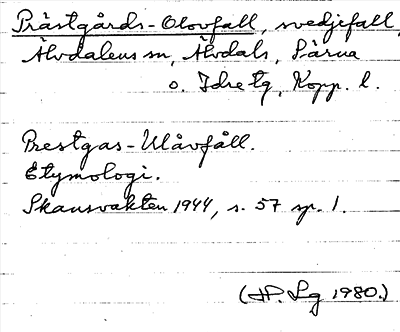 Prästgårds-Olovfall, svedjefall,
Älvdalens sn, Älvdals, Särna
o. Idre tg, Kopp. l.
Prestgas-Ulåvfåll.
Etymologi.
Skansvakten 1944, s. 57 sp. 1.
(HP. Lg 1980.)